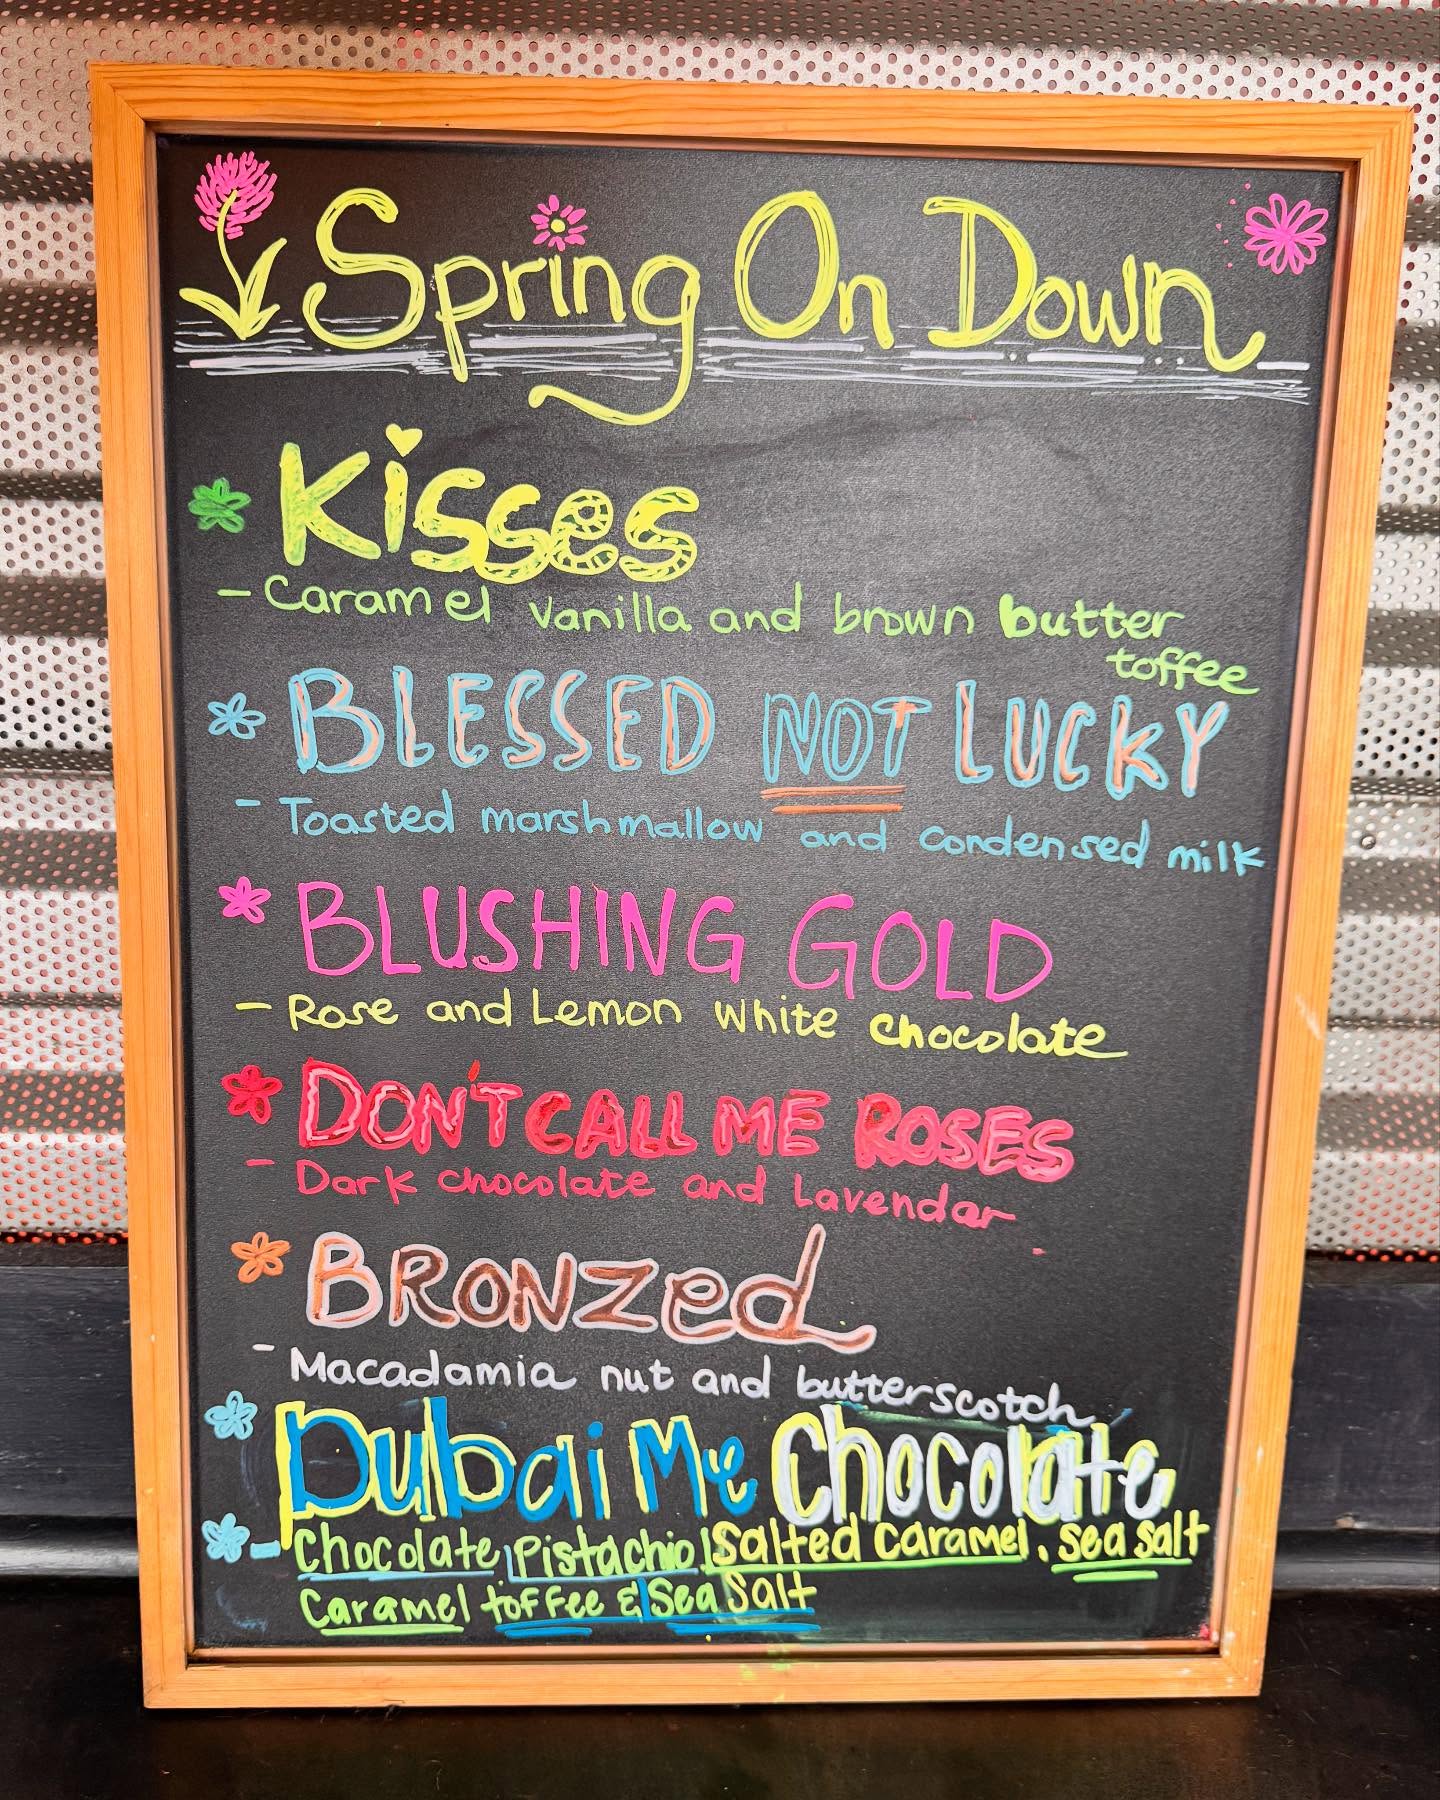 Spring On Down
Kisses
- Caramel vanilla and brown butter
toffee
BLESSED NOT LUCKY
- Toasted marshmallow and condensed milk
BLUSHING GOLD
- Rose and Lemon White chocolate
DON'T CALL ME ROSES
- Dark chocolate and Lavendar
BRONZed
- Macadamia nut and butterscotch
Dubai Me Chocolate
- Chocolate, Pistachio, Salted Caramel, sea salt
Caramel toffee & Sea Salt